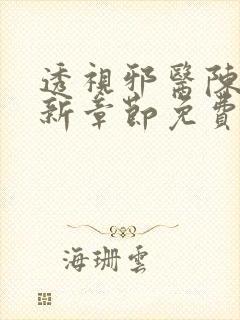 透視邪醫陳
新章節免費
海珊雲